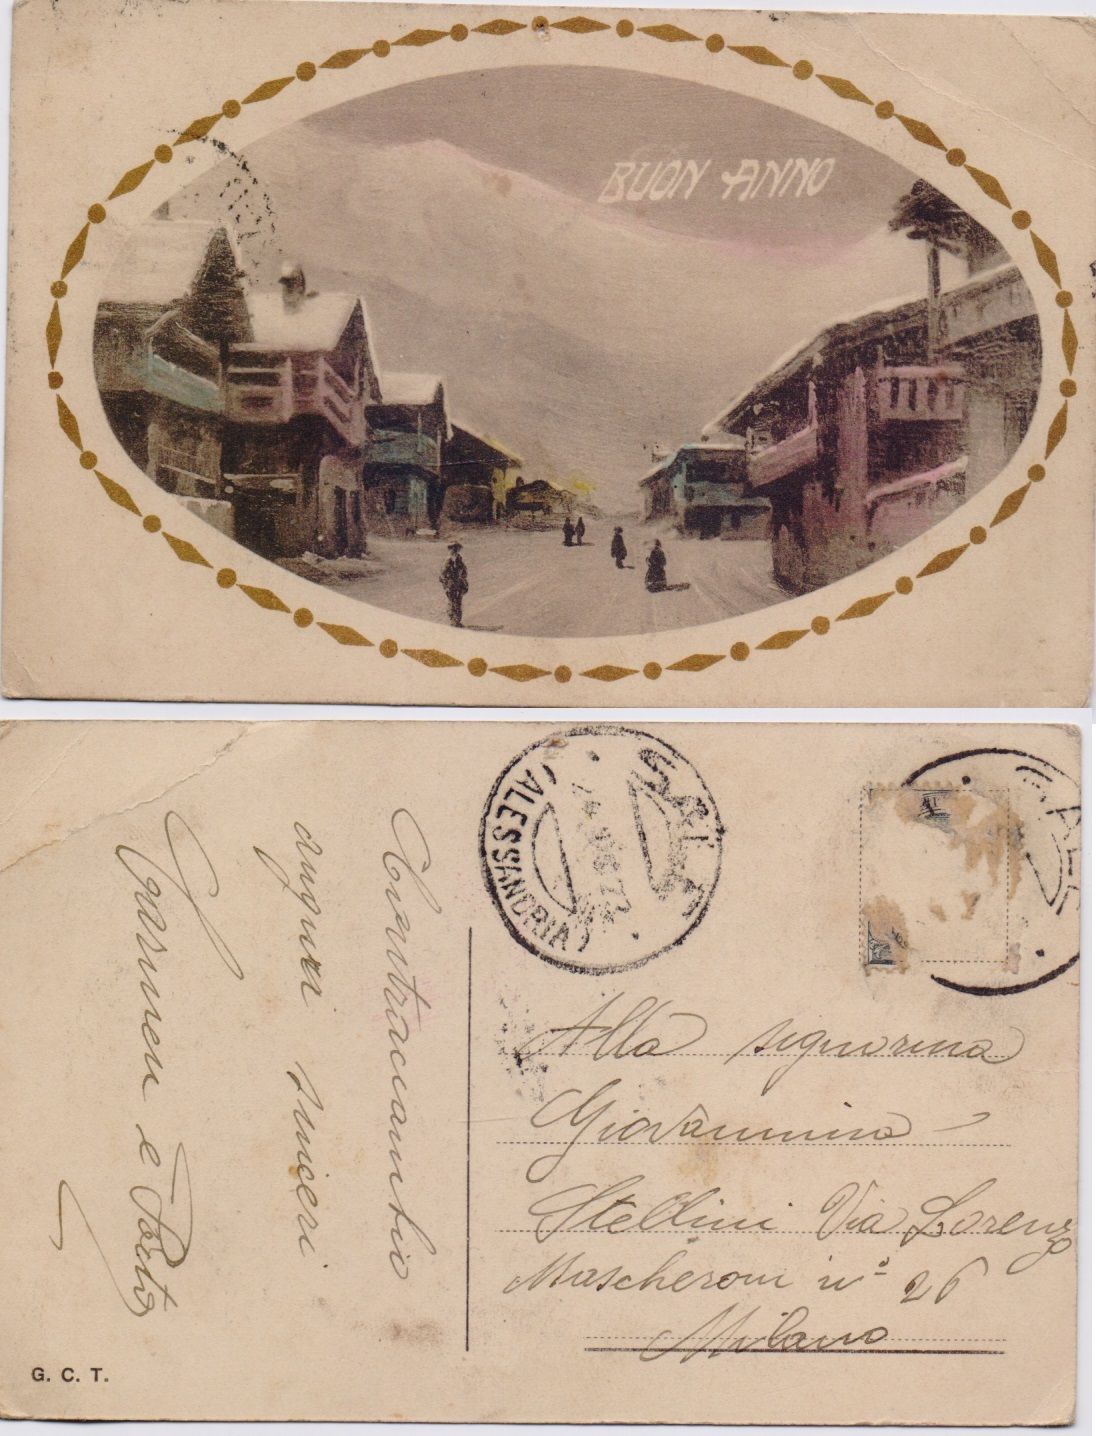 BUON ANNO
Contraccambio
auguri sinceri
Carmen e
SALE
(ALESSANDRIA)
SALE
Alla signorina
Giovannina
Stellini Via Lorenzo
Mascheroni nº 26
Milano
G. C. T.